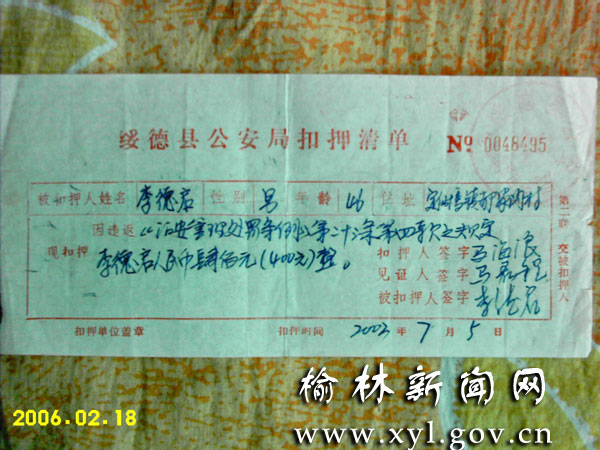 绥德县公安局扣押清单 № 0048495
被扣押人姓名 李德君 性别 男 年龄 46 住址 定仙墕镇 村
因违返 《治安管理处罚条例》第二十二条第四项之规定
现扣押 李德君人民币肆佰元(400元)整。
扣押人签字 马海浪
见证人签字
被扣押人签字 李德君
扣押单位盖章 扣押时间 2002 年 7 月 5 日
第二联 交被扣押人
2006.02.18
榆林新闻网
www.xyl.gov.cn